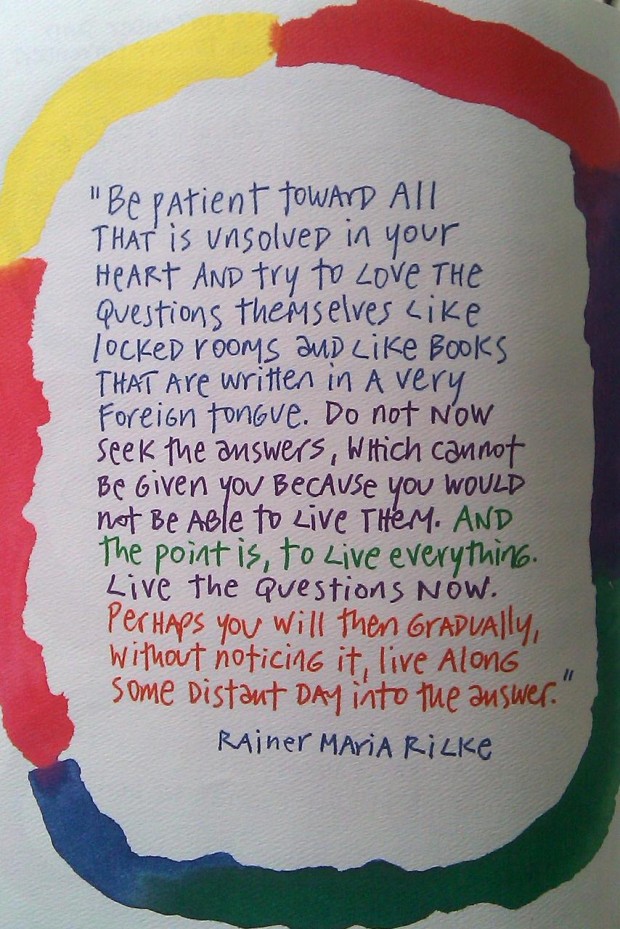 "Be patient toward All
THAT is unsolved in your
HeArt AND try to Love THe
Questions themselves Like
locked rooms and Like Books
THAT Are written in A very
Foreign tongue. Do not NOW
seek the answers, WHich cannot
Be Given you BecAuse you WOULD
not Be ABle to Live THeM. AND
the point is, to Live everything.
Live the Questions Now.
PerHAps you will then GrADUAlly,
without noticing it, live Along
some Distant DAy into the answer."
RAiner MAriA RiLKe